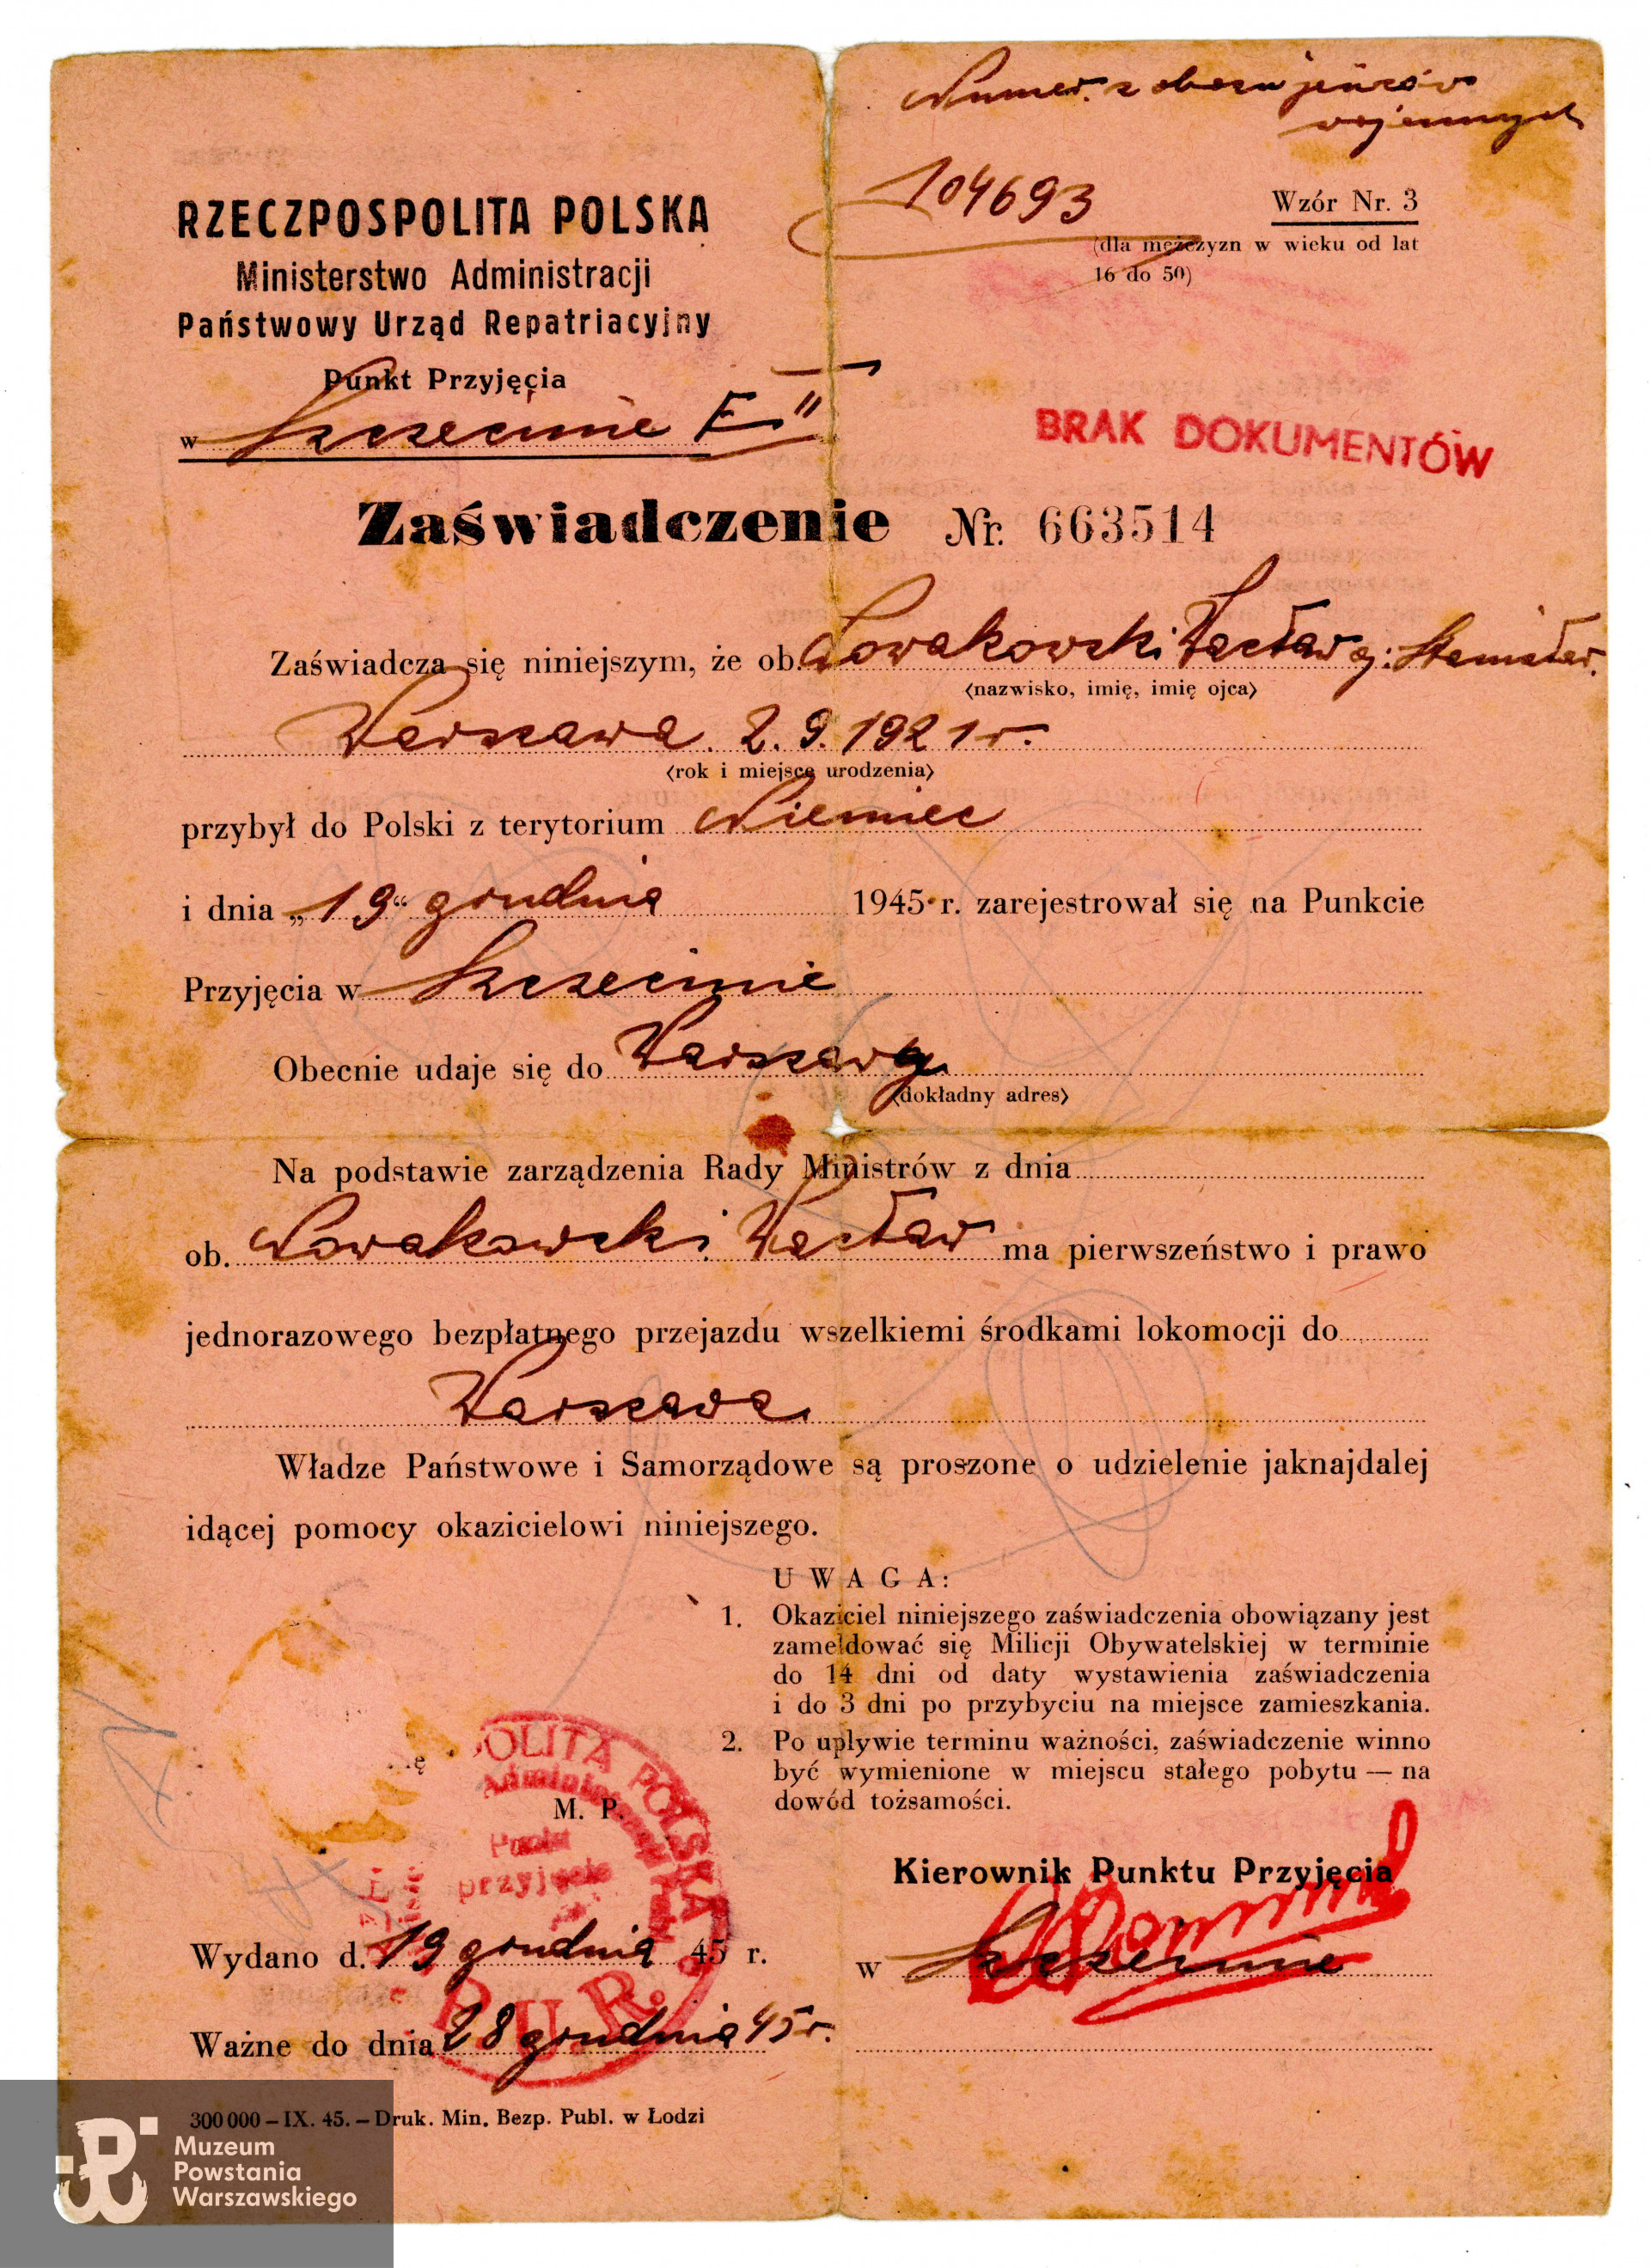 Numer z obozu jeńców
wojennych
104693
Wzór Nr. 3
(dla mężczyzn w wieku od lat
16 do 50)
RZECZPOSPOLITA POLSKA
Ministerstwo Administracji
Państwowy Urząd Repatriacyjny
Punkt Przyjęcia
w Szczecinie E II
BRAK DOKUMENTÓW
Zaświadczenie Nr. 663514
Zaświadcza się niniejszym, że ob. Nowakowski Wacław oj: Stanisław.
(nazwisko, imię, imię ojca)
Warszawa. 2. 9. 1921 r.
(rok i miejsce urodzenia)
przybył do Polski z terytorium Niemiec
i dnia „19“ grudnia 1945 r. zarejestrował się na Punkcie
Przyjęcia w Szczecinie
Obecnie udaje się do Warszawy
(dokładny adres)
Na podstawie zarządzenia Rady Ministrów z dnia
ob. Nowakowski Wacław ma pierwszeństwo i prawo
jednorazowego bezpłatnego przejazdu wszelkiemi środkami lokomocji do
Warszawa
Władze Państwowe i Samorządowe są proszone o udzielenie jaknajdalej
idącej pomocy okazicielowi niniejszego.
UWAGA:
1. Okaziciel niniejszego zaświadczenia obowiązany jest
zameldować się Milicji Obywatelskiej w terminie
do 14 dni od daty wystawienia zaświadczenia
i do 3 dni po przybyciu na miejsce zamieszkania.
2. Po upływie terminu ważności, zaświadczenie winno
być wymienione w miejscu stałego pobytu — na
dowód tożsamości.
OLITA POLSKA
M. P.
Punkt
przyjęcia
P.U.R.
Kierownik Punktu Przyjęcia
w Szczecinie
Wydano d. 19 grudnia 45 r.
Ważne do dnia 28 grudnia 45 r.
300 000 – IX. 45. – Druk. Min. Bezp. Publ. w Łodzi
Muzeum
Powstania
Warszawskiego